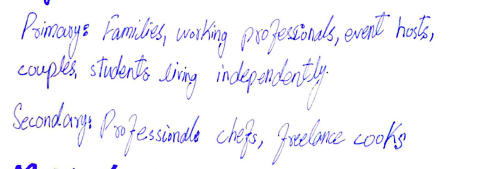 Primary: Families, working professionals, event hosts,
couples, students living independently.
Secondary: Professional chefs, freelance cooks